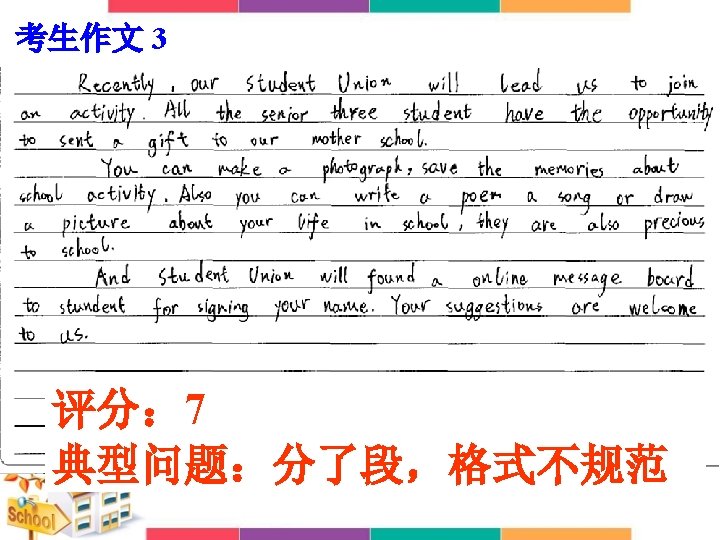 考生作文 3
Recently, our student Union will lead us to join
an activity. All the senior three student have the opportunity
to sent a gift to our mother school.
You can make a photograph, save the memories about
school activity. Also you can write a poem a song or draw
a picture about your life in school, they are also precious
to school.
And student Union will found a online message board
to stundent for signing your name. Your suggestions are welcome
to us.
评分：7
典型问题：分了段，格式不规范
School